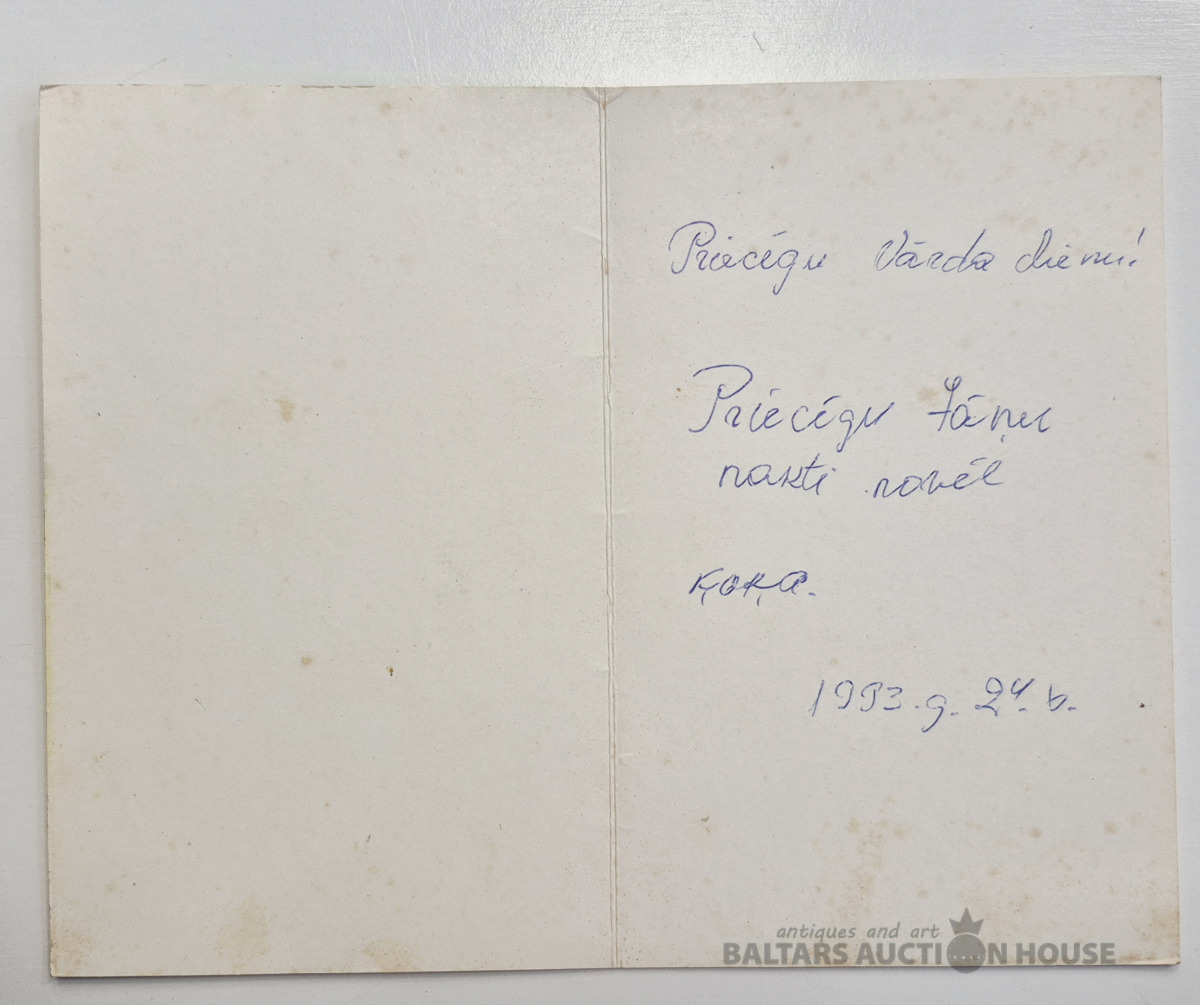 Priecīgu Vārda dienu!
Priecīgu Jāņu
nakti novēl
Ķoķa.
1993.g. 24. b.
antiques and art
BALTARS AUCTION HOUSE